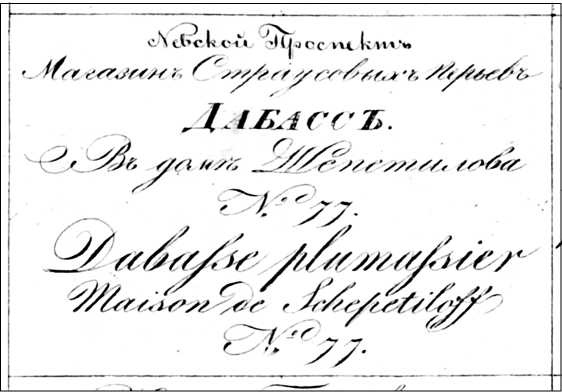 Невской Проспектъ
Магазинъ Страусовыхъ перьевъ
ДАБАССЪ.
Въ домѣ Шепетилова
№ 77.
Dabaſse plumaſsier
Maison de Schepetiloff
№ 77.